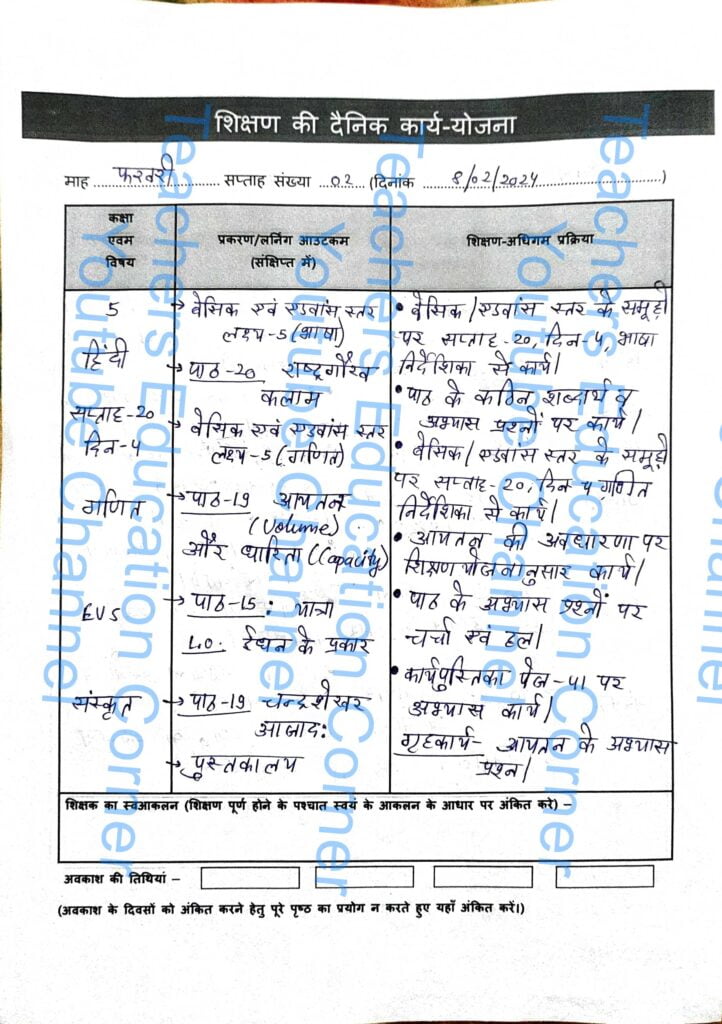 शिक्षण की दैनिक कार्य-योजना
माह फरवरी सप्ताह संख्या 02 (दिनांक 8/02/2024)
कक्षा
एवम
विषय
प्रकरण/लर्निंग आउटकम
(संक्षिप्त में)
शिक्षण-अधिगम प्रक्रिया
5
हिंदी
सप्ताह-20
दिन-4
गणित
EVS
संस्कृत
→ बेसिक एवं एडवांस स्तर
लक्ष्य-5 (भाषा)
→ पाठ-20 राष्ट्रगौरव
कलाम
→ बेसिक एवं एडवांस स्तर
लक्ष्य-5 (गणित)
→ पाठ-19 आयतन
(Volume)
और धारिता (Capacity)
→ पाठ-15: यात्रा
L.O. ईंधन के प्रकार
→ पाठ-19 चन्द्रशेखर
आजाद:
→ पुस्तकालय
• बेसिक/एडवांस स्तर के समूहों
पर सप्ताह-20, दिन-4, भाषा
निर्देशिका से कार्य।
• पाठ के कठिन शब्दार्थ व
अभ्यास प्रश्नों पर कार्य।
• बेसिक/एडवांस स्तर के समूहों
पर सप्ताह-20, दिन 4 गणित
निर्देशिका से कार्य।
• आयतन की अवधारणा पर
शिक्षण योजनानुसार कार्य।
• पाठ के अभ्यास प्रश्नों पर
चर्चा एवं हल।
• कार्यपुस्तिका पेज-41 पर
अभ्यास कार्य।
गृहकार्य- आयतन के अभ्यास
प्रश्न।
शिक्षक का स्वआकलन (शिक्षण पूर्ण होने के पश्चात स्वयं के आकलन के आधार पर अंकित करे) –
अवकाश की तिथियां –
(अवकाश के दिवसों को अंकित करने हेतु पूरे पृष्ठ का प्रयोग न करते हुए यहाँ अंकित करें।)
Teachers Education Corner
Youtube Channel
Teachers Education Corner
Youtube Channel
Teachers Education Corner
Youtube Channel